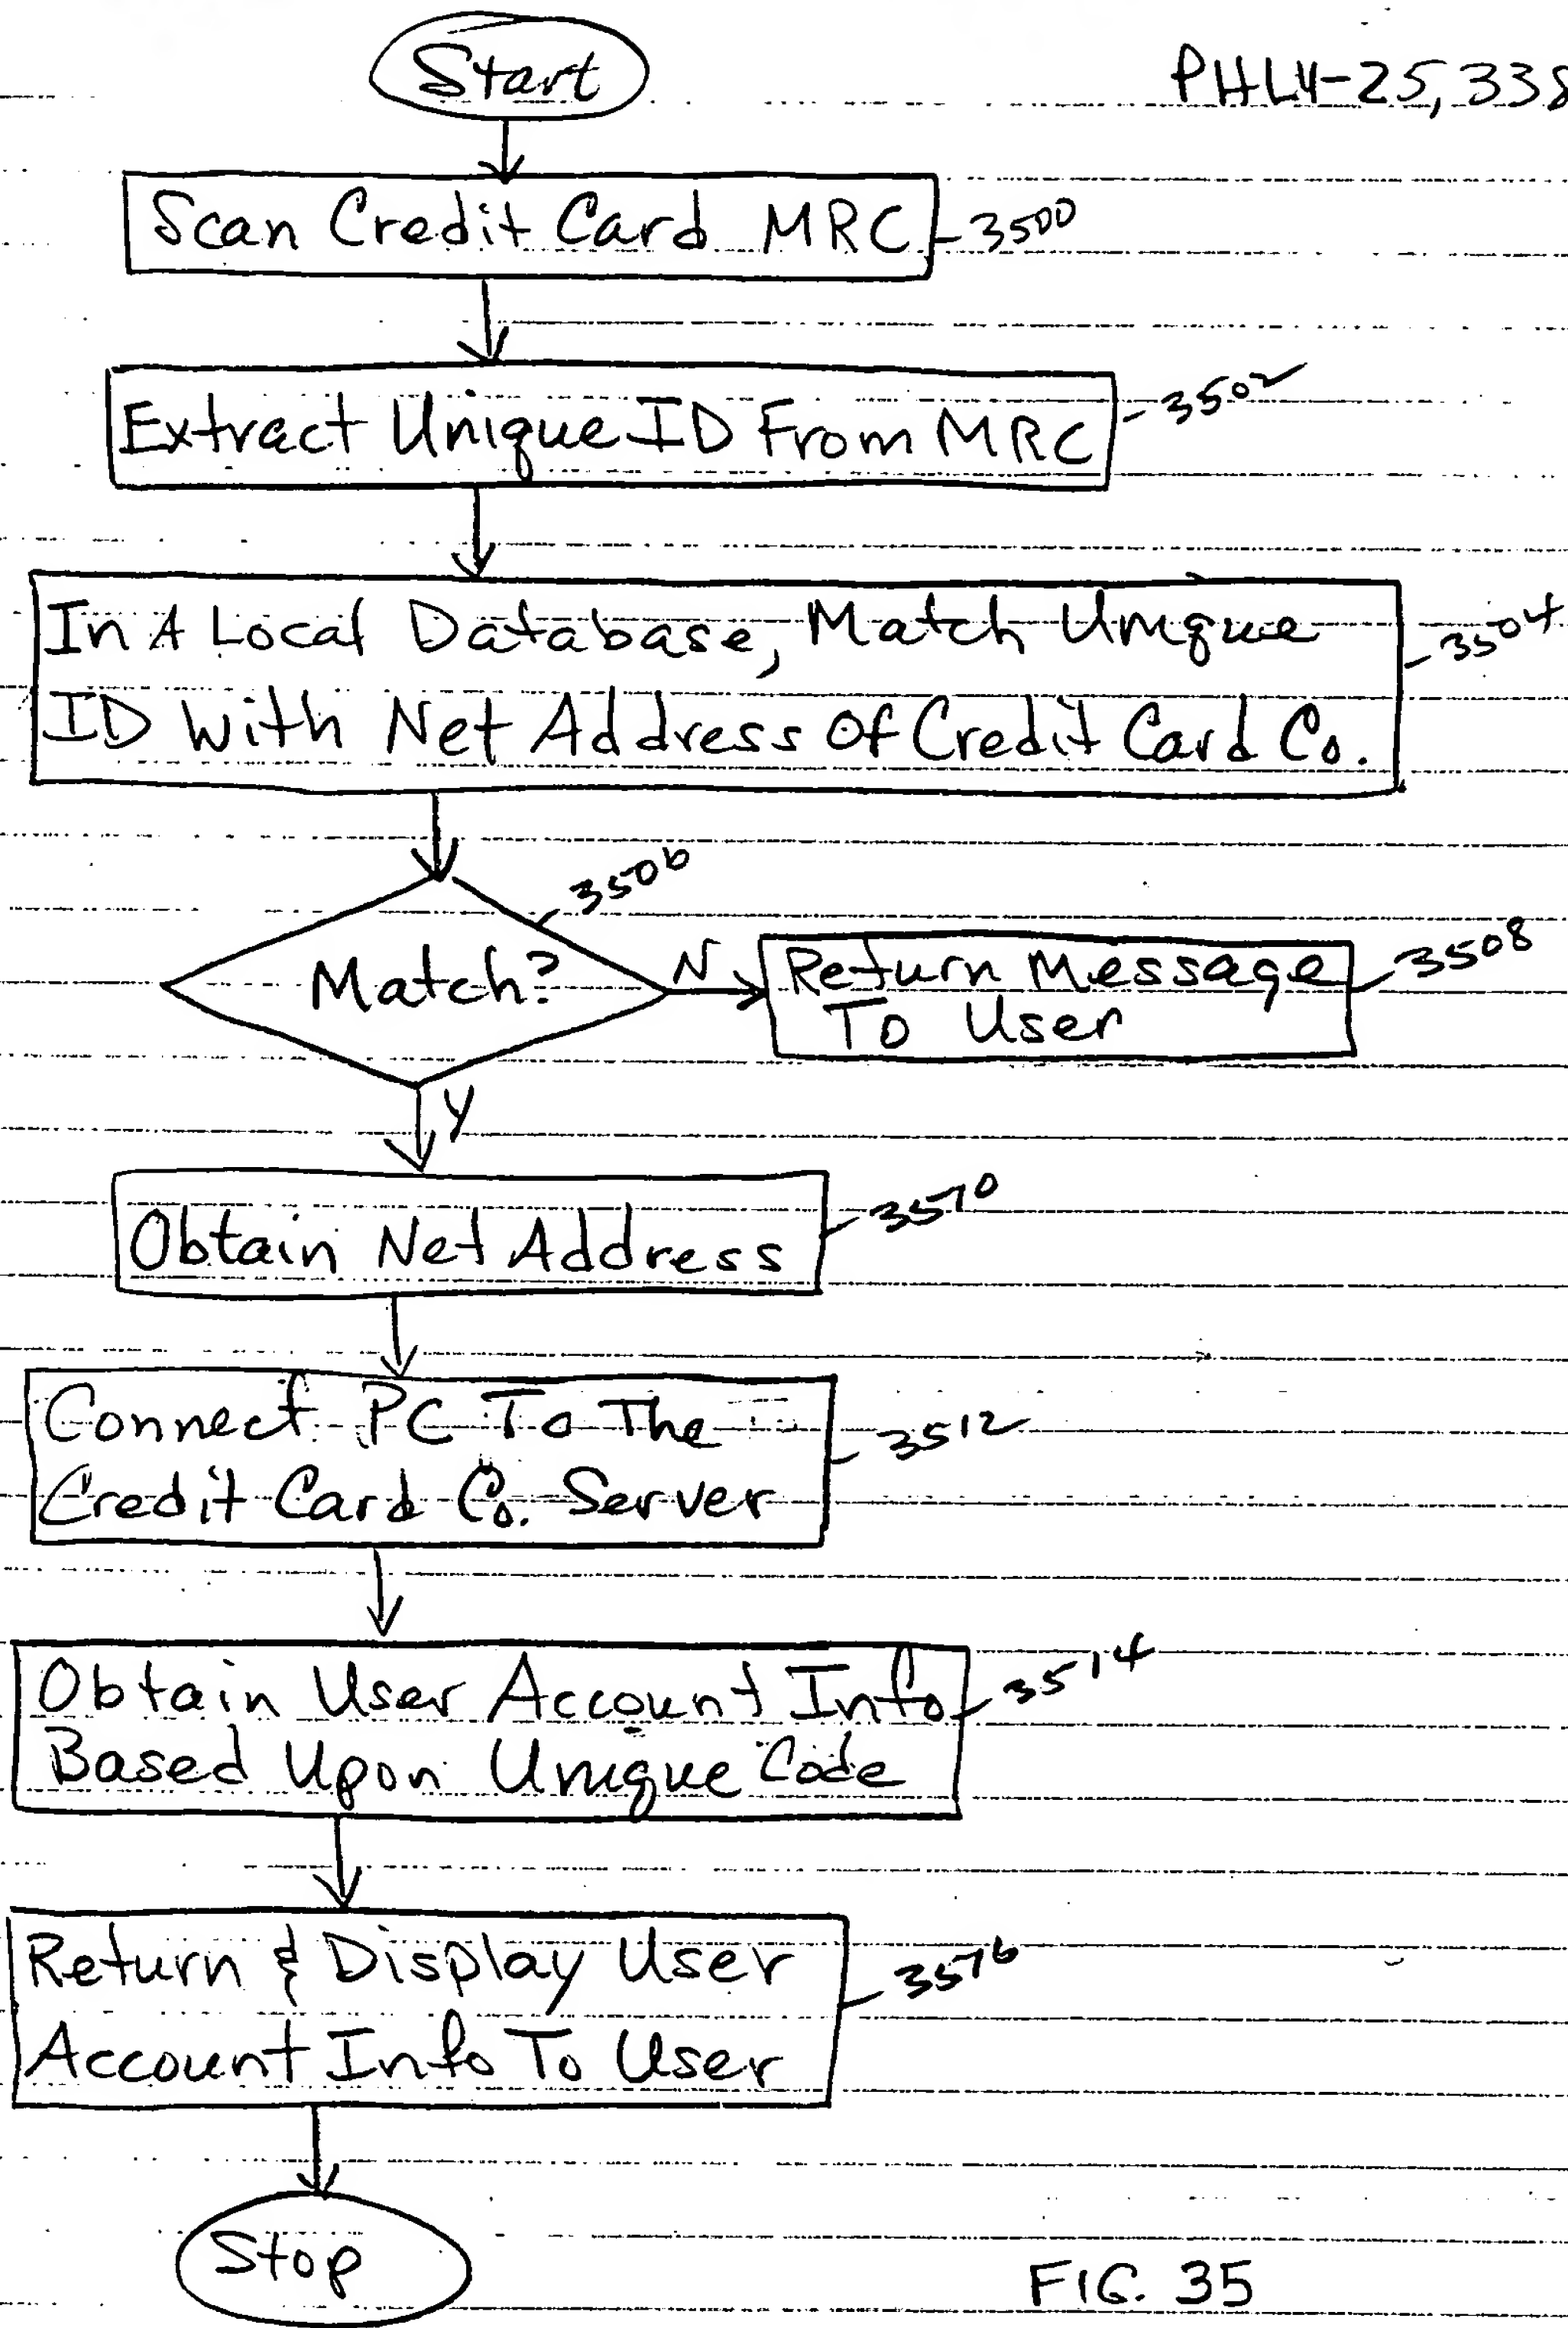 Start
PHLY-25,338
Scan Credit Card MRC
3500
Extract Unique ID From MRC
3502
In A Local Database, Match Unique
3504
ID With Net Address Of Credit Card Co.
3506
Match?
N
Return Message
3508
To User
Y
Obtain Net Address
3510
Connect PC To The
3512
Credit Card Co. Server
Obtain User Account Info
3514
Based Upon Unique Code
Return & Display User
3516
Account Info To User
Stop
FIG. 35